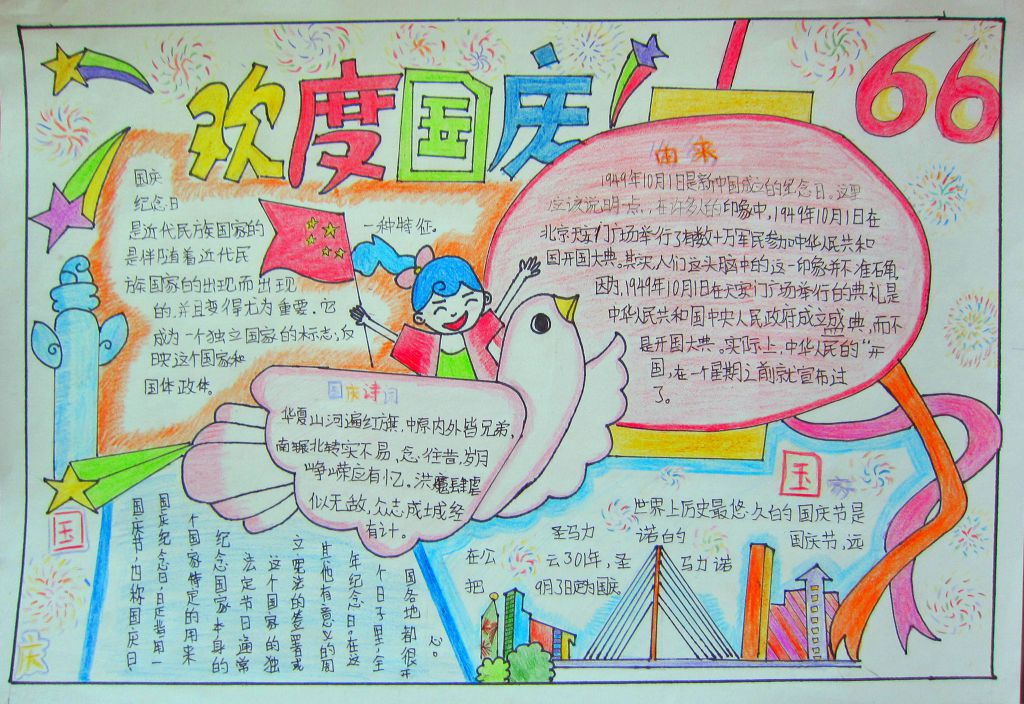 欢度国庆
66
国庆
纪念日
是近代民族国家的
一种特征。
是伴随着近代民
族国家的出现而出现
的，并且变得尤为重要。它
成为一个独立国家的标志，反
映这个国家和
国体政体。
由来
1949年10月1日是新中国成立的纪念日。这里
应该说明一点，在许多人的印象中，1949年10月1日在
北京天安门广场举行了有数十万军民参加中华人民共和
国开国大典。其实，人们这头脑中的这一印象并不准确，
因为，1949年10月1日在天安门广场举行的典礼是
中华人民共和国中央人民政府成立盛典，而不
是开国大典。实际上，中华人民的“开
国，在一个星期之前就宣布过
了。
国庆诗词
华夏山河遍红旗，中原内外皆兄弟，
南辗北转实不易，忘往昔，岁月
峥嵘应有忆。洪魔肆虐
似无敌，众志成城经
有计。
国家
世界上历史最悠久的国庆节是
圣马力 诺的 国庆节，远
在公 云301年，圣 马力诺
把 9月3日定为国庆
国
庆
国庆节，也称国庆日、
国庆纪念日是指用一
个国家特定的用来
纪念国家本身的
法定节日通常
这个国家的独
立宪法的签署或
其他有意义的周
年纪念日。在这
个日子里，全
国各地都很开
心。